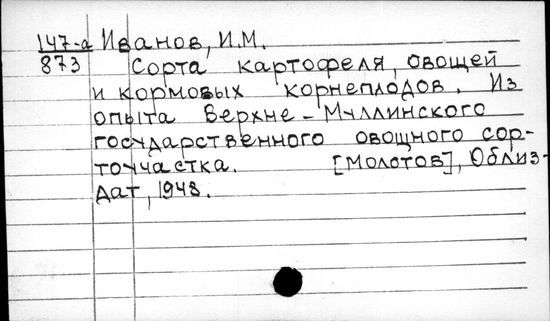 147-а Иванов, И.М.
873 Сорта картофеля, овощей
и кормовых корнеплодов. Из
опыта Верхне-Муллинского
государственного овощного сор-
тоучастка. [Молотов], Облиз-
дат, 1948.